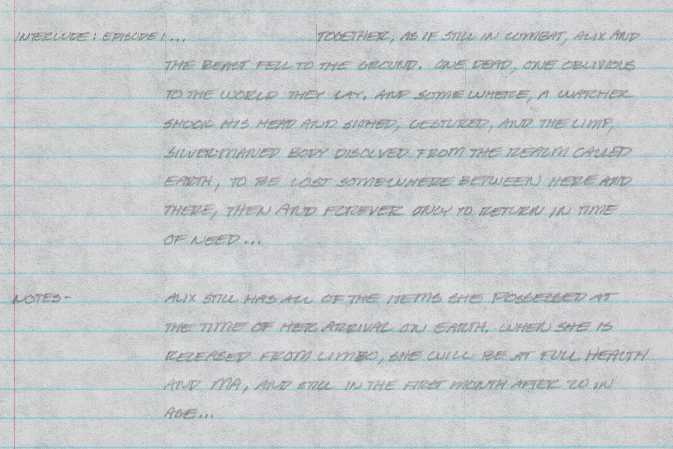 INTERLUDE: EPISODE 1... TOGETHER, AS IF STILL IN COMBAT, ALIX AND
THE BEAST FELL TO THE GROUND. ONE DEAD, ONE OBLIVIOUS
TO THE WORLD THEY LAY. AND SOMEWHERE, A WATCHER
SHOOK HIS HEAD AND SIGHED, GESTURED, AND THE LIMP,
SILVER-MANED BODY DISOLVED FROM THE REALM CALLED
EARTH, TO BE LOST SOMEWHERE BETWEEN HERE AND
THERE, THEN AND FOREVER ONLY TO RETURN IN TIME
OF NEED...
NOTES- ALIX STILL HAS ALL OF THE ITEMS SHE POSSESSED AT
THE TIME OF HER ARRIVAL ON EARTH. WHEN SHE IS
RELEASED FROM LIMBO, SHE WILL BE AT FULL HEALTH
AND MA, AND STILL IN THE FIRST MONTH AFTER 20 IN
AGE...